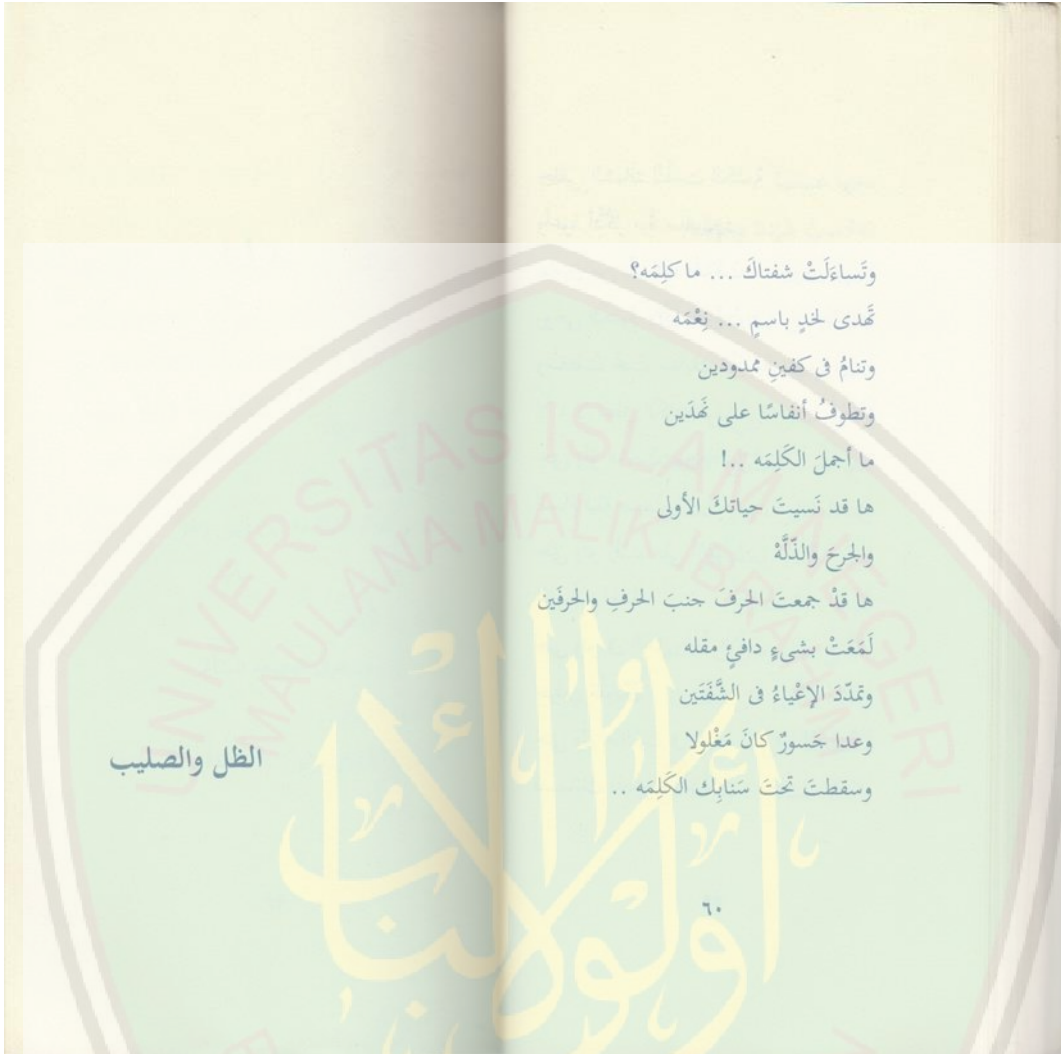 وتَساءَلَتْ شفتاكَ ... ما كلِمَه؟
تَهدى لخدٍ باسمٍ ... نِعْمَه
وتنامُ فى كفينِ ممدودين
وتطوفُ أنفاسًا على نَهدَين
ما أجملَ الكَلِمَه ..!
ها قد نَسيتَ حياتكَ الأولى
والجرحَ والذّلَّهْ
ها قدْ جمعتَ الحرفَ جنبَ الحرفِ والحرفَين
لَمَعَتْ بشىءٍ دافئٍ مقله
وتمدّدَ الإعْياءُ فى الشَّفَتَين
وعدا جَسورٌ كانَ مَغْلولا
وسقطتَ تحتَ سَنابِك الكَلِمَه ..
٦٠
الظل والصليب
UNIVERSITAS ISLAM NEGERI
MAULANA MALIK IBRAHIM
أولو الألباب